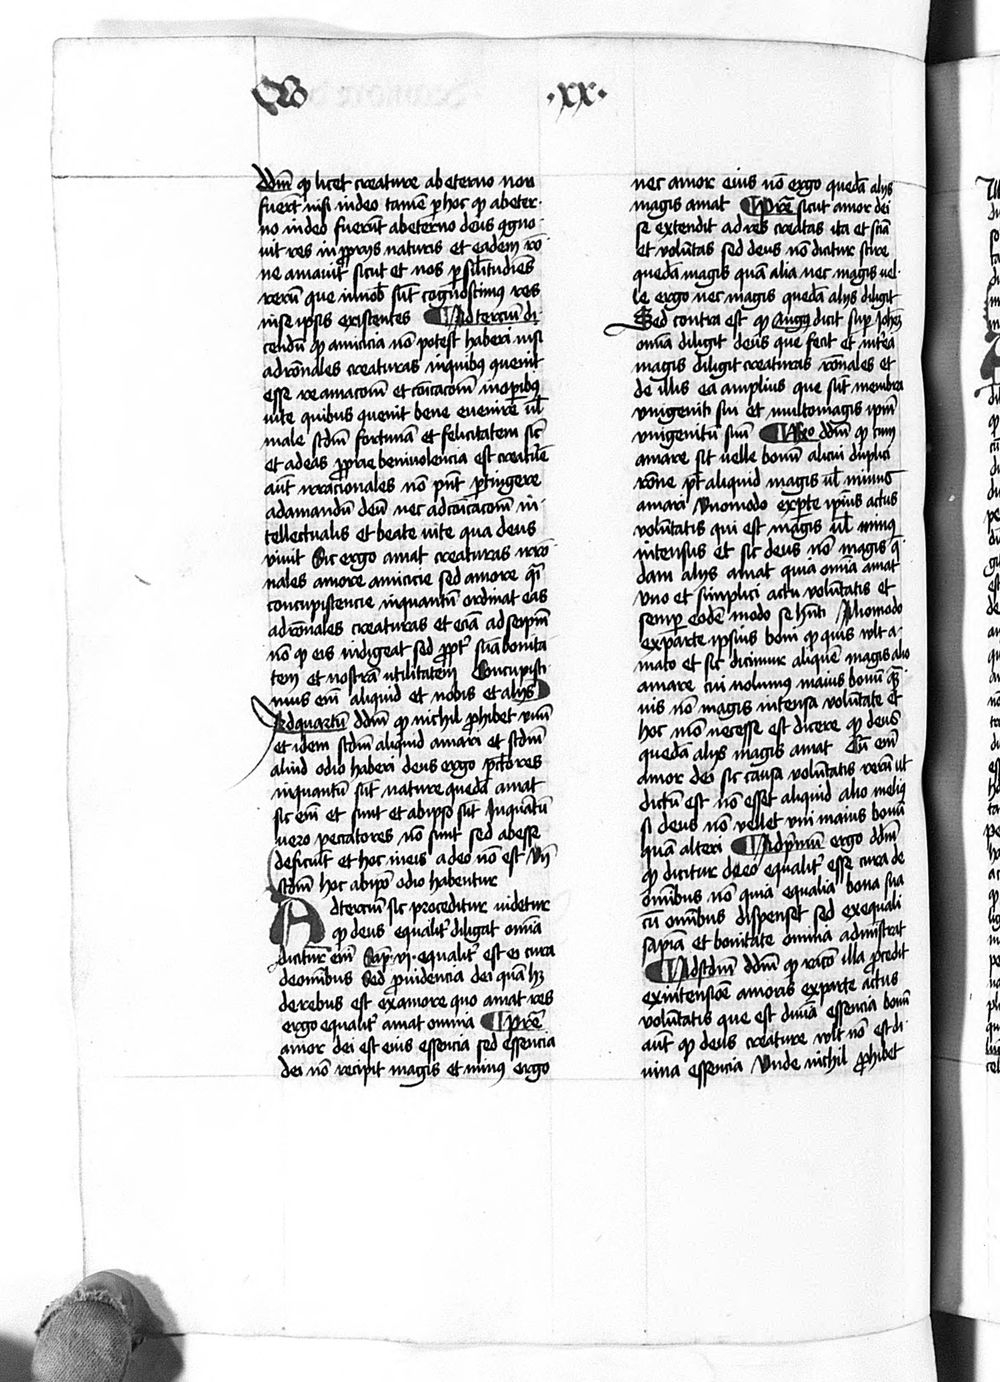 Q ·xx·
ddm̄ qͥ licet creature ab eterno non
fuer̄t nisi in deo tamē p̱ hoc ꝙ ab eter-
no in deo fuerūt ab eterno deus ꝯgno
uit res in ꝓpriis naturis et eadem rō
ne amauit sicut et nos ꝑ sil̄itudīes
rerū que in nob̄ sūt cognoscimꝰ res
in se ipsis existentes Ad terciū di
cendū ꝙ amicicia nō potest haberi nisi
ad rōnales creaturas in quibꝰ ꝯuenit
esse reamacōm̄ et cōicacōm̄ in oꝑibꝰ
uite quibus ꝯuenit bene euenire ul̄
male scd̄m fortunā et felicitatem sic̄
et ad eas ꝓprie beniuolencia est creature
aūt irracionales nō pn̄t ꝑtingere
ad amandū deū nec ad cōicacōm̄ in-
tellectualis et beate uite qua deus
viuit Sic ergo amat creaturas irrō
nales amore amicicie sed amore qͣi
concupiscencie inquantū ordinat eas
ad rōnales creaturas et eciā ad seipm̄
nō ꝙ eis indigeat sed ꝓpt̄ suā bonita
tem et nostrā utilitatem Concupisci
mus em̄ aliquid et nobis et aliis
Ad quartū ddm̄ ꝙ nichil ꝓhibet vnū
et idem scd̄m aliquid amari et scd̄m
aliud odio haberi deus ergo pctōres
inquantū sūt nature quedā amat
sic em̄ et sunt et ab ipso sūt Inquātū
uero peccatores nō sunt sed ab esse
deficiūt et hoc in eis a deo nō est Vn̄
scd̄m hoc ab ipo odio habentur
Ad terciū sic proceditur uidetur
ꝙ deus equalit̄ diligat omīa
dicitur em̄ Sap̄ vi equalit̄ est ei cura
de omībus Sed ꝓuidencia dei quā hꝫ
de rebus est ex amore quo amat res
ergo equalit̄ amat omnia Pret̄e
amor dei est eius essencia sed essencia
dei nō recipit magis et minꝰ ergo
nec amor eius nō ergo quedā aliis
magis amat Pret̄e sicut amor dei
se extendit ad res creatas ita et sciā
et volūtas sed deus nō dicitur scire
quedā magis quā alia nec magis uel-
le ergo nec magis quedā aliis diligit
Sed contra est ꝙ augꝰ dicit suꝑ Joħem
omīa diligit deus que fecit et int̄ ea
magis diligit creaturas rōnales et
de illis ea amplius que sūt membra
vnigeniti sui et multo magis ipm̄
vnigenitū suū Rn̄o ddm̄ ꝙ cum
amare sit uelle bonū alicui duplici
rōne pt̄ aliquid magis ul̄ minus
amari Vno modo ex ꝑte ipius actus
volūtatis qui est magis ul̄ minꝰ
intensus et sic deus nō magis qͣ
dam aliis amat quia omīa amat
vno et simplici actu volūtatis et
semꝑ eodē modo se hn̄ti Alio modo
ex ꝑarte ipsius boni ꝙ quis vlt a-
mato et sic dicimur aliquē magis alio
amare cui uolumꝰ maius bonū qͣ-
uis nō magis intensa volūtate et
hoc mō necesse est dicere ꝙ deus
quedā aliis magis amat Cū em̄
amor dei sit causa volūtatis rerū ut
dictū est nō esset aliquid alio meliꝰ
si deus nō vellet vni maius bonū
quā alteri Ad pͥmū ergo ddm̄
ꝙ dicitur deo equalit̄ esse cura de
omībus nō quia equalia bona sua
cū omībus dispenset sed ex equali
sapīa et bonitate omīa admīstrat
Ad scd̄m ddm̄ ꝙ racō illa ꝓcedit
ex intensiōe amoris ex parte actus
volūtatis que est diuīa essencia bonū
aūt ꝙ deus creature vlt nō est di-
uina essencia Vnde nichil ꝓhibet